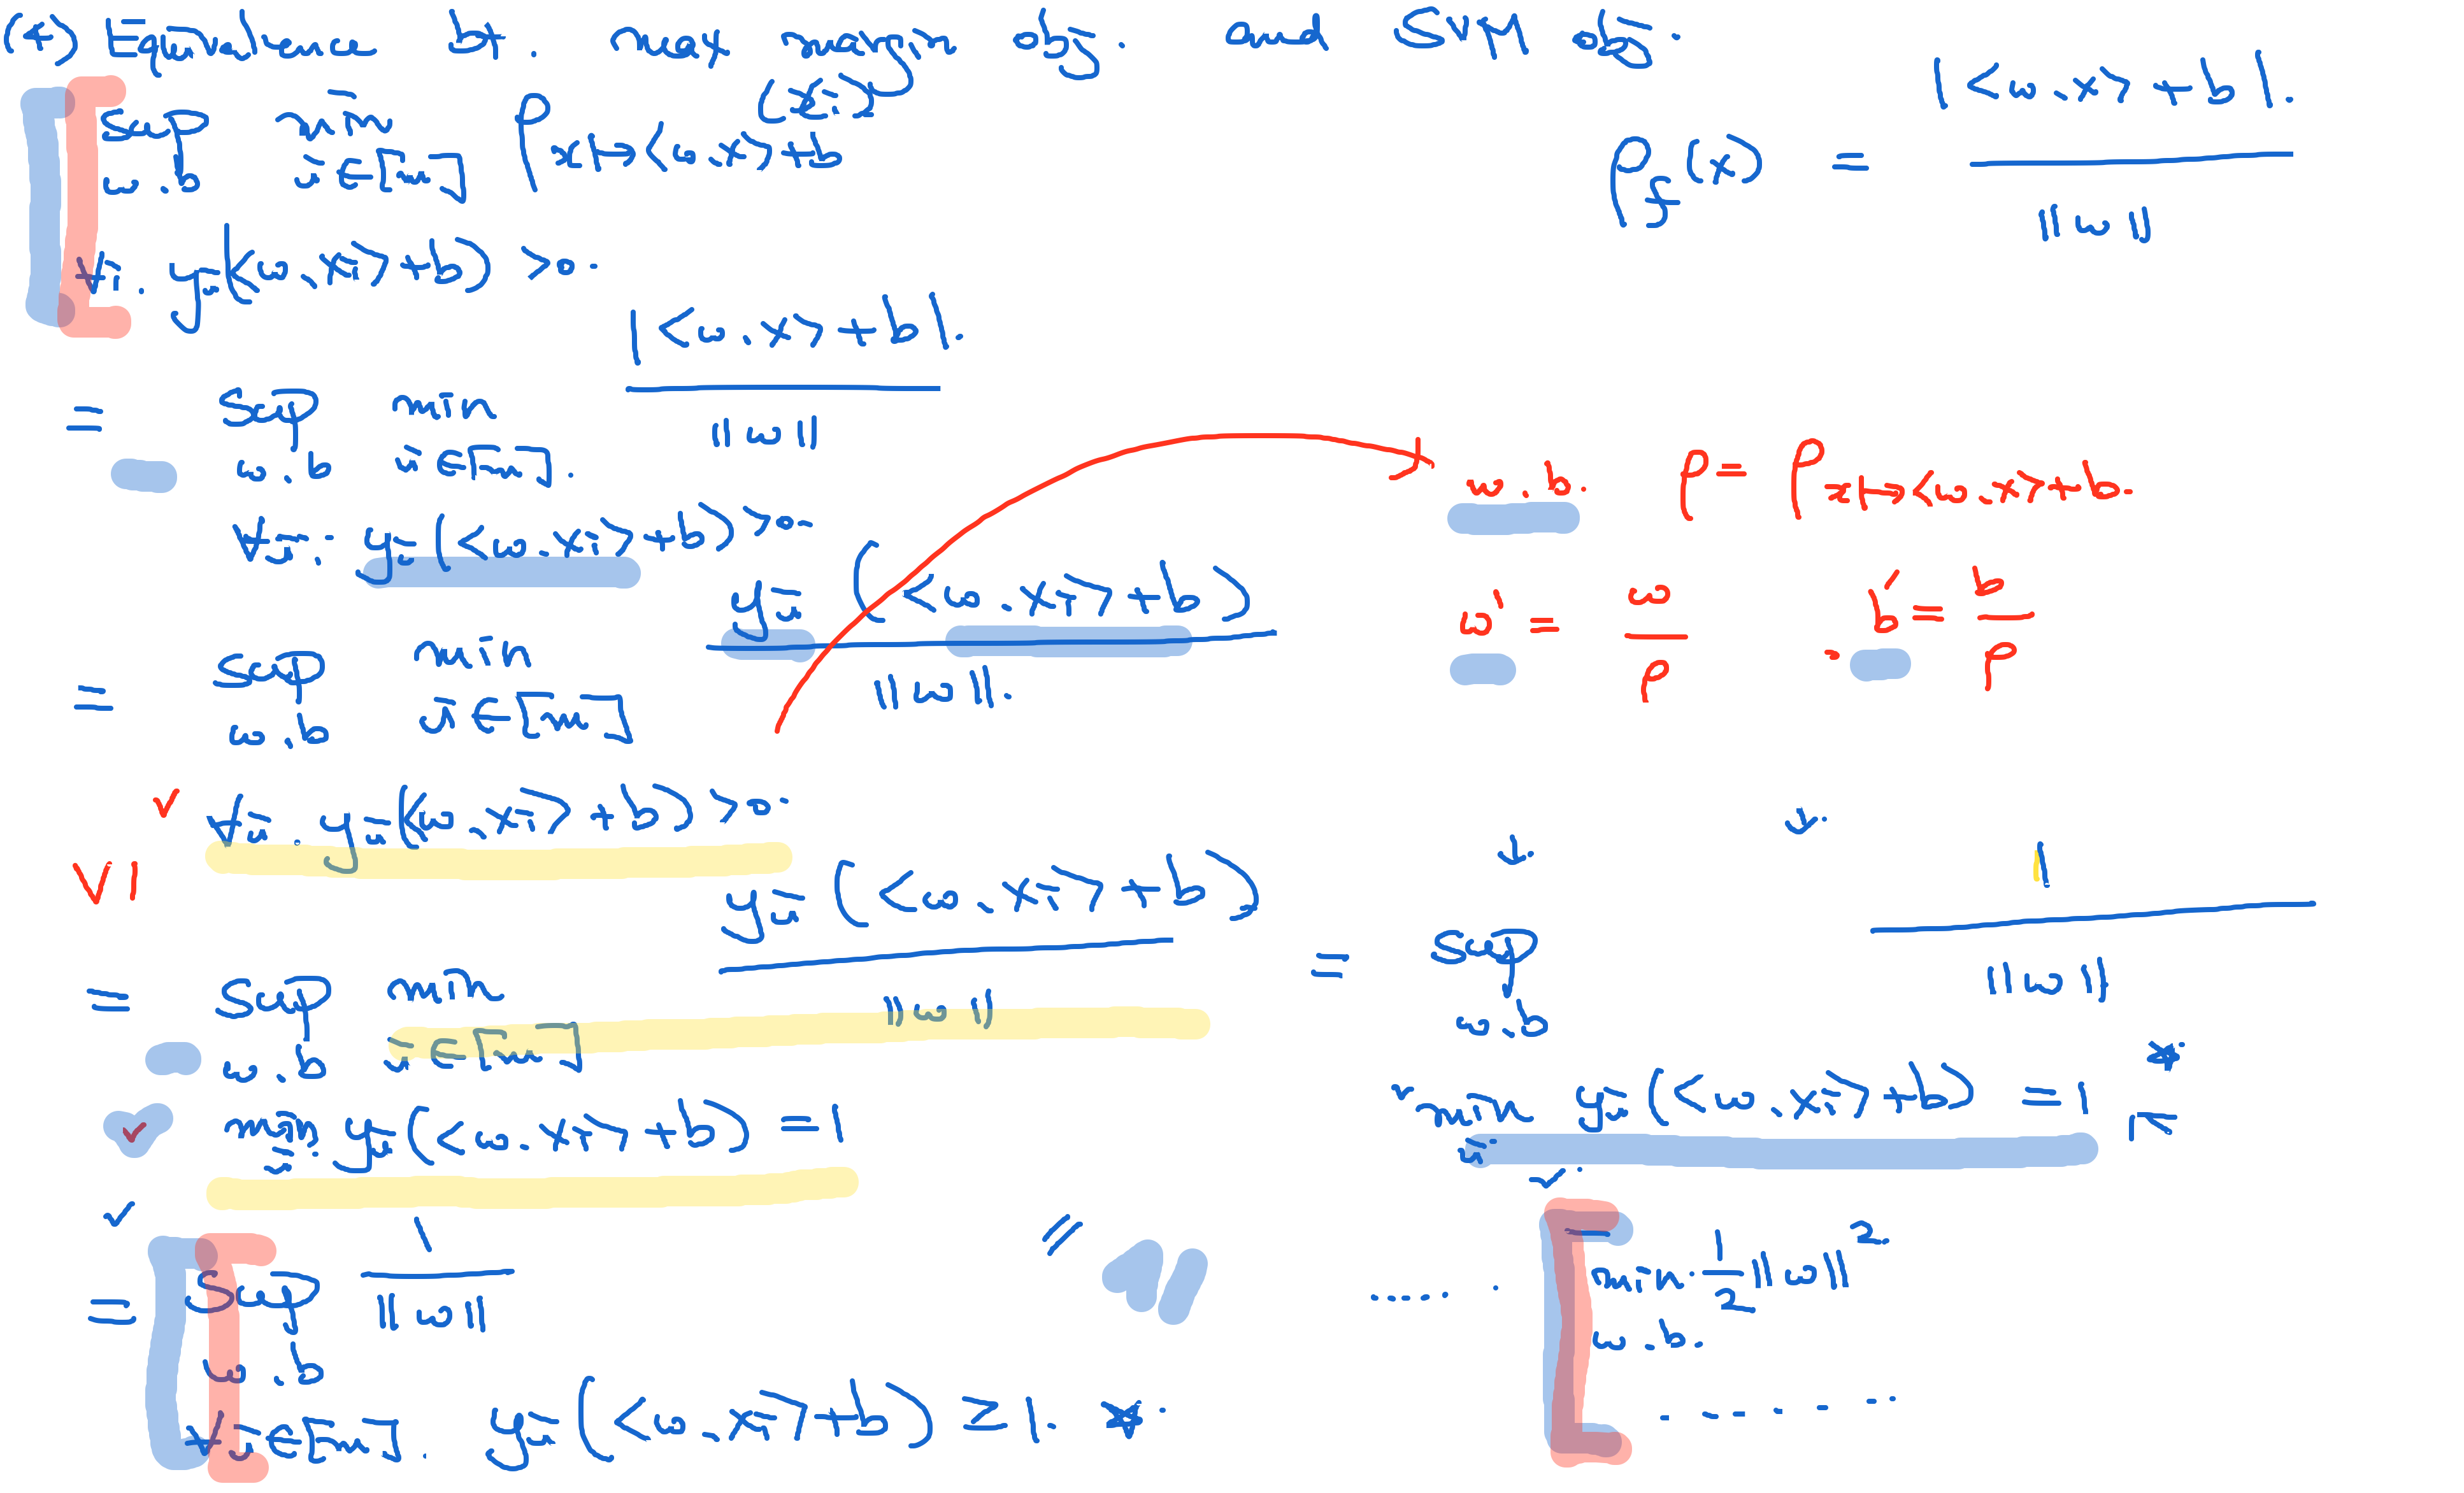 (4) Equivalence bt. max margin obj. and SVM obj.
sup_{w,b} min_{i∈[m]} ρ_{x↦<w,x>+b}(x_i)
ρ_f(x) = |<w,x>+b| / ‖w‖
∀i. y_i(<w,x_i>+b) >0.
= sup_{w,b} min_{i∈[m]} |<w,x_i>+b| / ‖w‖
∀i. y_i(<w,x_i>+b) >0
w,b. ρ = ρ_{x↦<w,x>+b}
= sup_{w,b} min_{i∈[m]} y_i(<w,x_i>+b) / ‖w‖
w' = w/ρ , b' = b/ρ
∀i. y_i(<w,x_i>+b) >0
= sup_{w,b} min_{i∈[m]} y_i(<w,x_i>+b) / ‖w‖ = sup_{w,b} 1 / ‖w‖
min_i y_i(<w,x_i>+b) =1
min_i y_i(<w,x_i>+b) =1 *
= sup_{w,b} 1 / ‖w‖
∀i∈[m]. y_i(<w,x_i>+b) ≥1. *
min_{w,b} 1/2 ‖w‖²